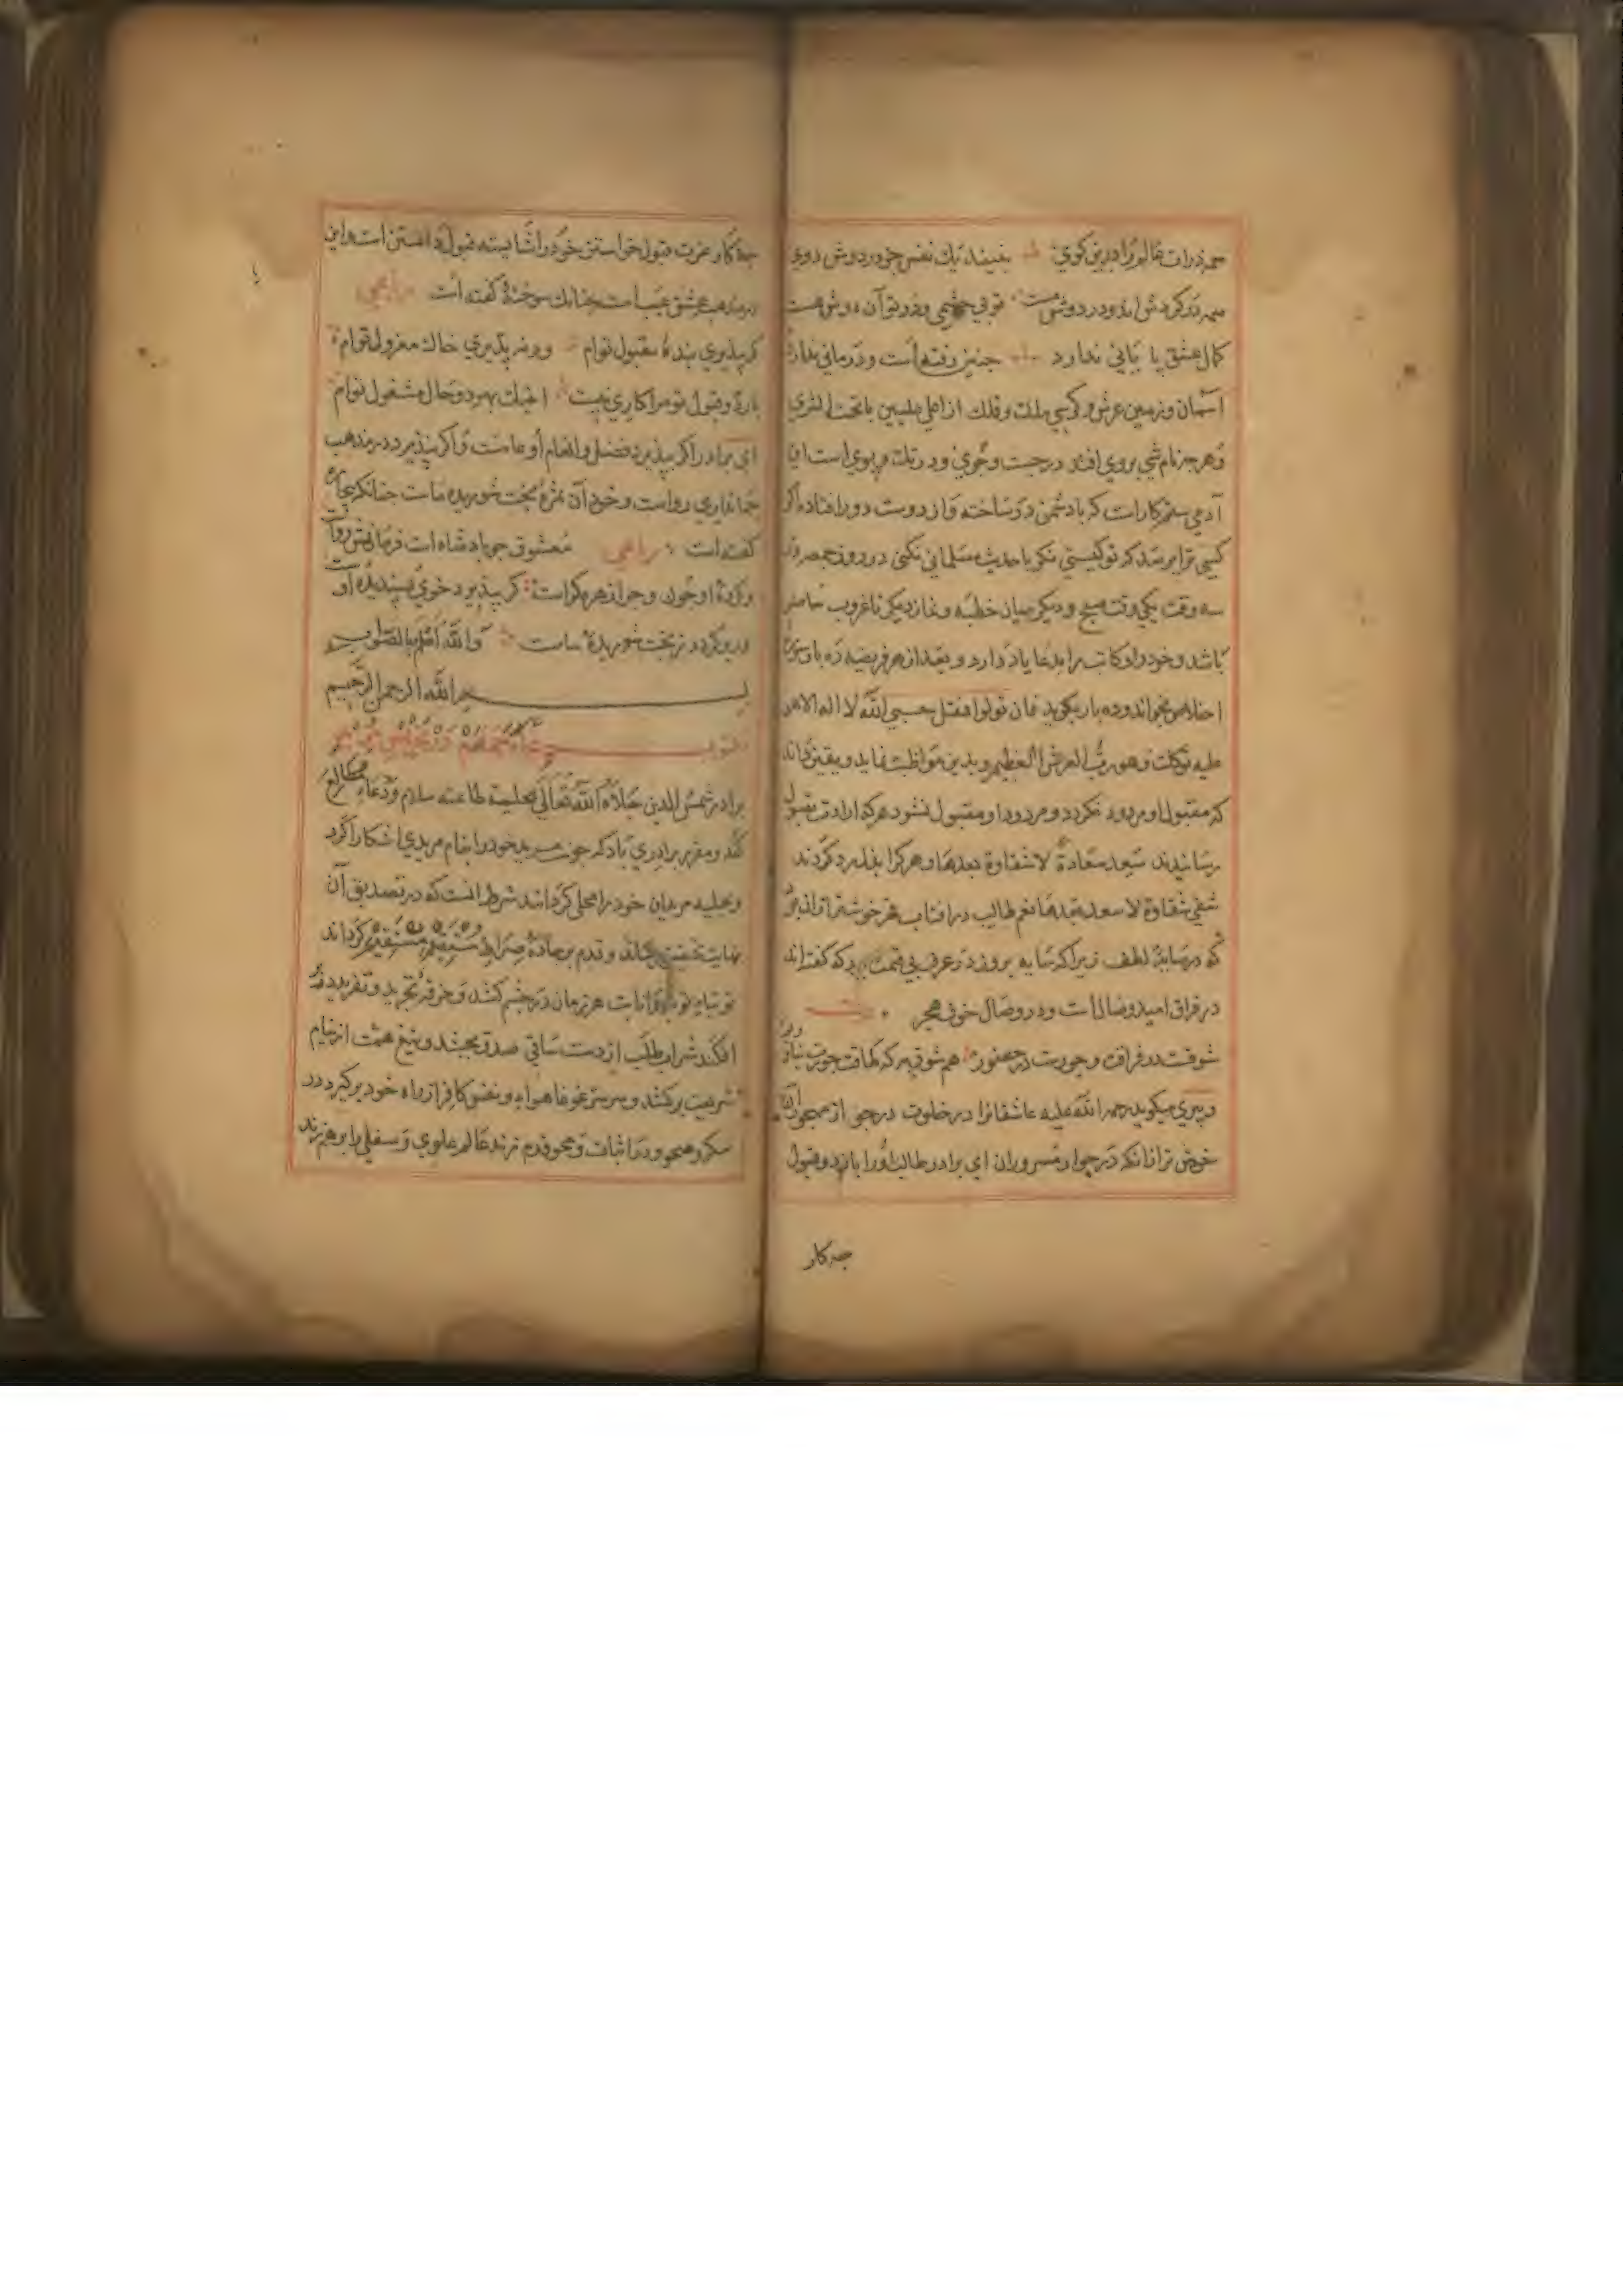 همه ذرات عالم را درین کوی نبیند یک نفس جز در روش روی
همه در گردش اند و در روش مست تو بی چشمی و در تو آن روش هست
کمال عشق پایانی ندارد چنین رفته است و درمانی ندارد
آسمان و زمین عرش و کرسی ملک و فلک از اعلی علیین تا تحت الثری
و هر چه نام شی بروی افتد در جست و جوی و در تک و پوی است این
آدمی ستمکار است که با دشمن در ساخته و از دوست دور افتاده اگر
کسی ترا پرسد که تو کیستی نگر تا حدیث مسلمانی نکنی در روز جمعه
سه وقت یکی وقت صبح و دیگر میان خطبه و نماز دیگر تا غروب حاضر
باشد و خود را و کاتب را بدعا یاد دارد و بعد از هر فریضه ده بار سوره
اخلاص بخواند و ده بار بگوید فان تولوا فقل حسبی الله لا اله الا هو
علیه توکلت و هو رب العرش العظیم و بدین مواظبت نماید و یقین داند
که مقبول او مردود نگردد و مردود او مقبول نشود هر که ارادت بقبول
رسانیدند سعد سعادة لا شقاوة بعدها و هر کرا رد کردند
شقی شقاوة لا سعد بعدها نعم طالب در آفتاب قهر خوشتر از آن بود
که در سایهٔ لطف زیرا که سایه پرورد در عرف بی قیمت بود که گفته اند
در فراق امید وصال است و در وصال خوف هجر
شوقت در فراقت و جورت در حضور هم شوق به که طاقت جورت نیاورد
و پیری میگوید رحمة الله علیه عاشقانرا در خلوت
خوش تر از آنکه در جوار مسروران ای برادر طالب او را با رد و قبول
چه کار
چه کار عزت قبول خواستن خود را شایسته قبول دانستن است و این
در مذهب عشق عیب است چنانک سوختهٔ گفته است رباعی
گر بپذیری بندهٔ مقبول توام ور نپذیری خاک معزول توام
با رد و قبول تو مرا کاری نیست اینک بهمه وجه و حال مشغول توام
ای برادر اگر بپذیرد فضل و انعام او عامست و اگر نپذیرد در مذهب
جهانداری رواست و خود آن ثمرهٔ بخت شوریده ماست چنانکه
گفته است رباعی معشوق چو پادشاه است فرمانش رواست
گر بپذیرد خوی پسندیدهٔ اوست
ور رد کرد ز بخت شوریدهٔ ماست والله اعلم بالصواب
بسم الله الرحمن الرحیم
برادر شمس الدین حلاه الله تعالی بحلیة طاعته سلام و دعا مطالعه
کند و مقرر برادری باد که چون مرید خود را بنام مریدی آشکارا کرد
و بحلیه مریدان خود را محلی گردانید شرط آنست که در تصدیق آن
نهایت تحقیق و قدم بر جادهٔ صراط مستقیم گرداند
توتیای توبه و انابت هر زمان در چشم کشد و خرقهٔ تجرید و تفرید در بر
افکند شراب طلب از دست ساقی صدق بچشد و تیغ همت از نیام
شریعت برکشد و سر غوغا هوا و نفس کافر از راه خود برگیرد در
سکر و صحو و در اثبات و محو قدم زند عالم علوی و سفلی را بر هم زند